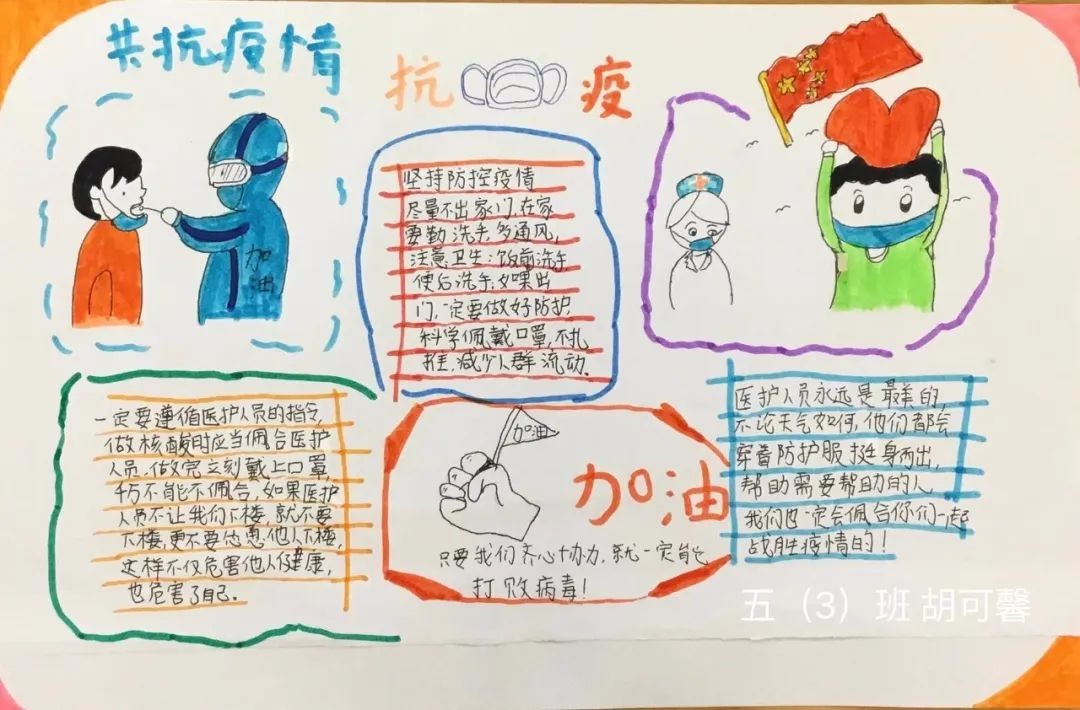 共抗疫情
抗 疫
加
油
坚持防控疫情
尽量不出家门,在家
要勤洗手,多通风,
注意卫生:饭前洗手
便后洗手;如果出
门,一定要做好防护,
科学佩戴口罩,不扎
推,减少人群流动.
一定要遵循医护人员的指令,
做核酸时应当佩合医护
人员,做完立刻戴上口罩,
千万不能不佩合,如果医护
人员不让我们下楼,就不要
下楼,更不要怂恿他人下楼,
这样不仅危害他人健康,
也危害了自己.
加油
加油
只要我们齐心协力,就一定能
打败病毒!
医护人员永远是最美的,
不论天气如何,他们都会
穿着防护服挺身而出,
帮助需要帮助的人
我们也一定会佩合你们一起
战胜疫情的!
五(3)班 胡可馨